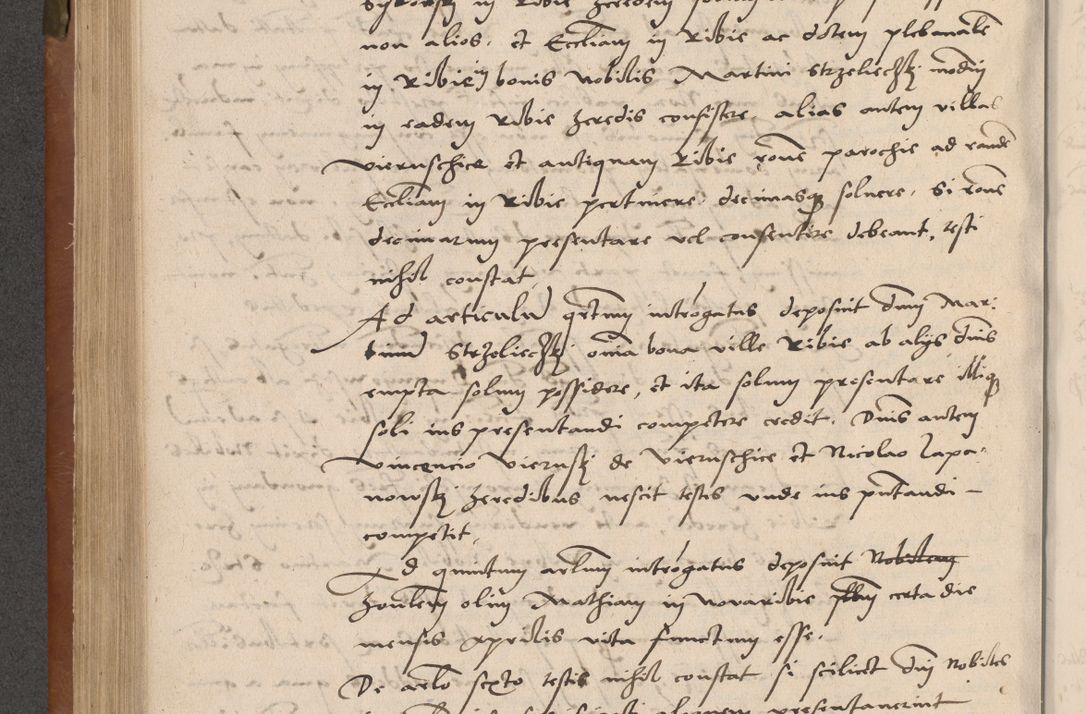 non alios. et Eccliam in Ribie ac dotem plebanale
in Ribie in bonis Nobilis Martini Strzeliechski modu
in eadem Ribie heredis consistere. alias autem villas
Vieruschice et antiquam Ribie rone parochie ad eande
Eccliam in Ribie pertinere. decimasque soluere. Si rone
decimarum presentare vel consentire debeant, testi
nihil constat.
Ad articulum qrtum introgatus deposuit dnm Mar:
tinum Strzeliechski omia bona ville Ribie ab alijs dnis
empta solum possidere, et ita solum presentare illique
soli ius presentandi competere credit. Dnis autem
Vincencio Vierusky de Vieruschice et Nicolao Lapa:
nowsky heredibus nescit testis unde ius pntandi
competit.
Ad quintum artlum introgatus deposuit Nobilem
honlem olim Mathiam in Novaribie plbm certa die
mensis Aprilis vita functum esse.
De artlo sexto testis nihil constat si scilicet dni Nobiles
presentauerint